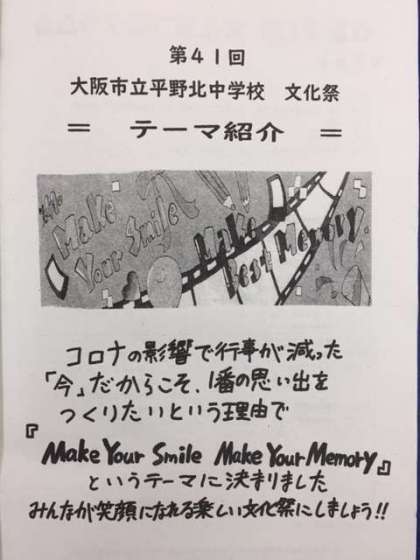 第41回
大阪市立平野北中学校 文化祭
= テーマ紹介 =
Make
Your Smile
Make
Best Memory
コロナの影響で行事が減った
「今」だからこそ、1番の思い出を
つくりたいという理由で
『Make Your Smile Make Your Memory』
というテーマに決まりました
みんなが笑顔になれる楽しい文化祭にしましょう!!